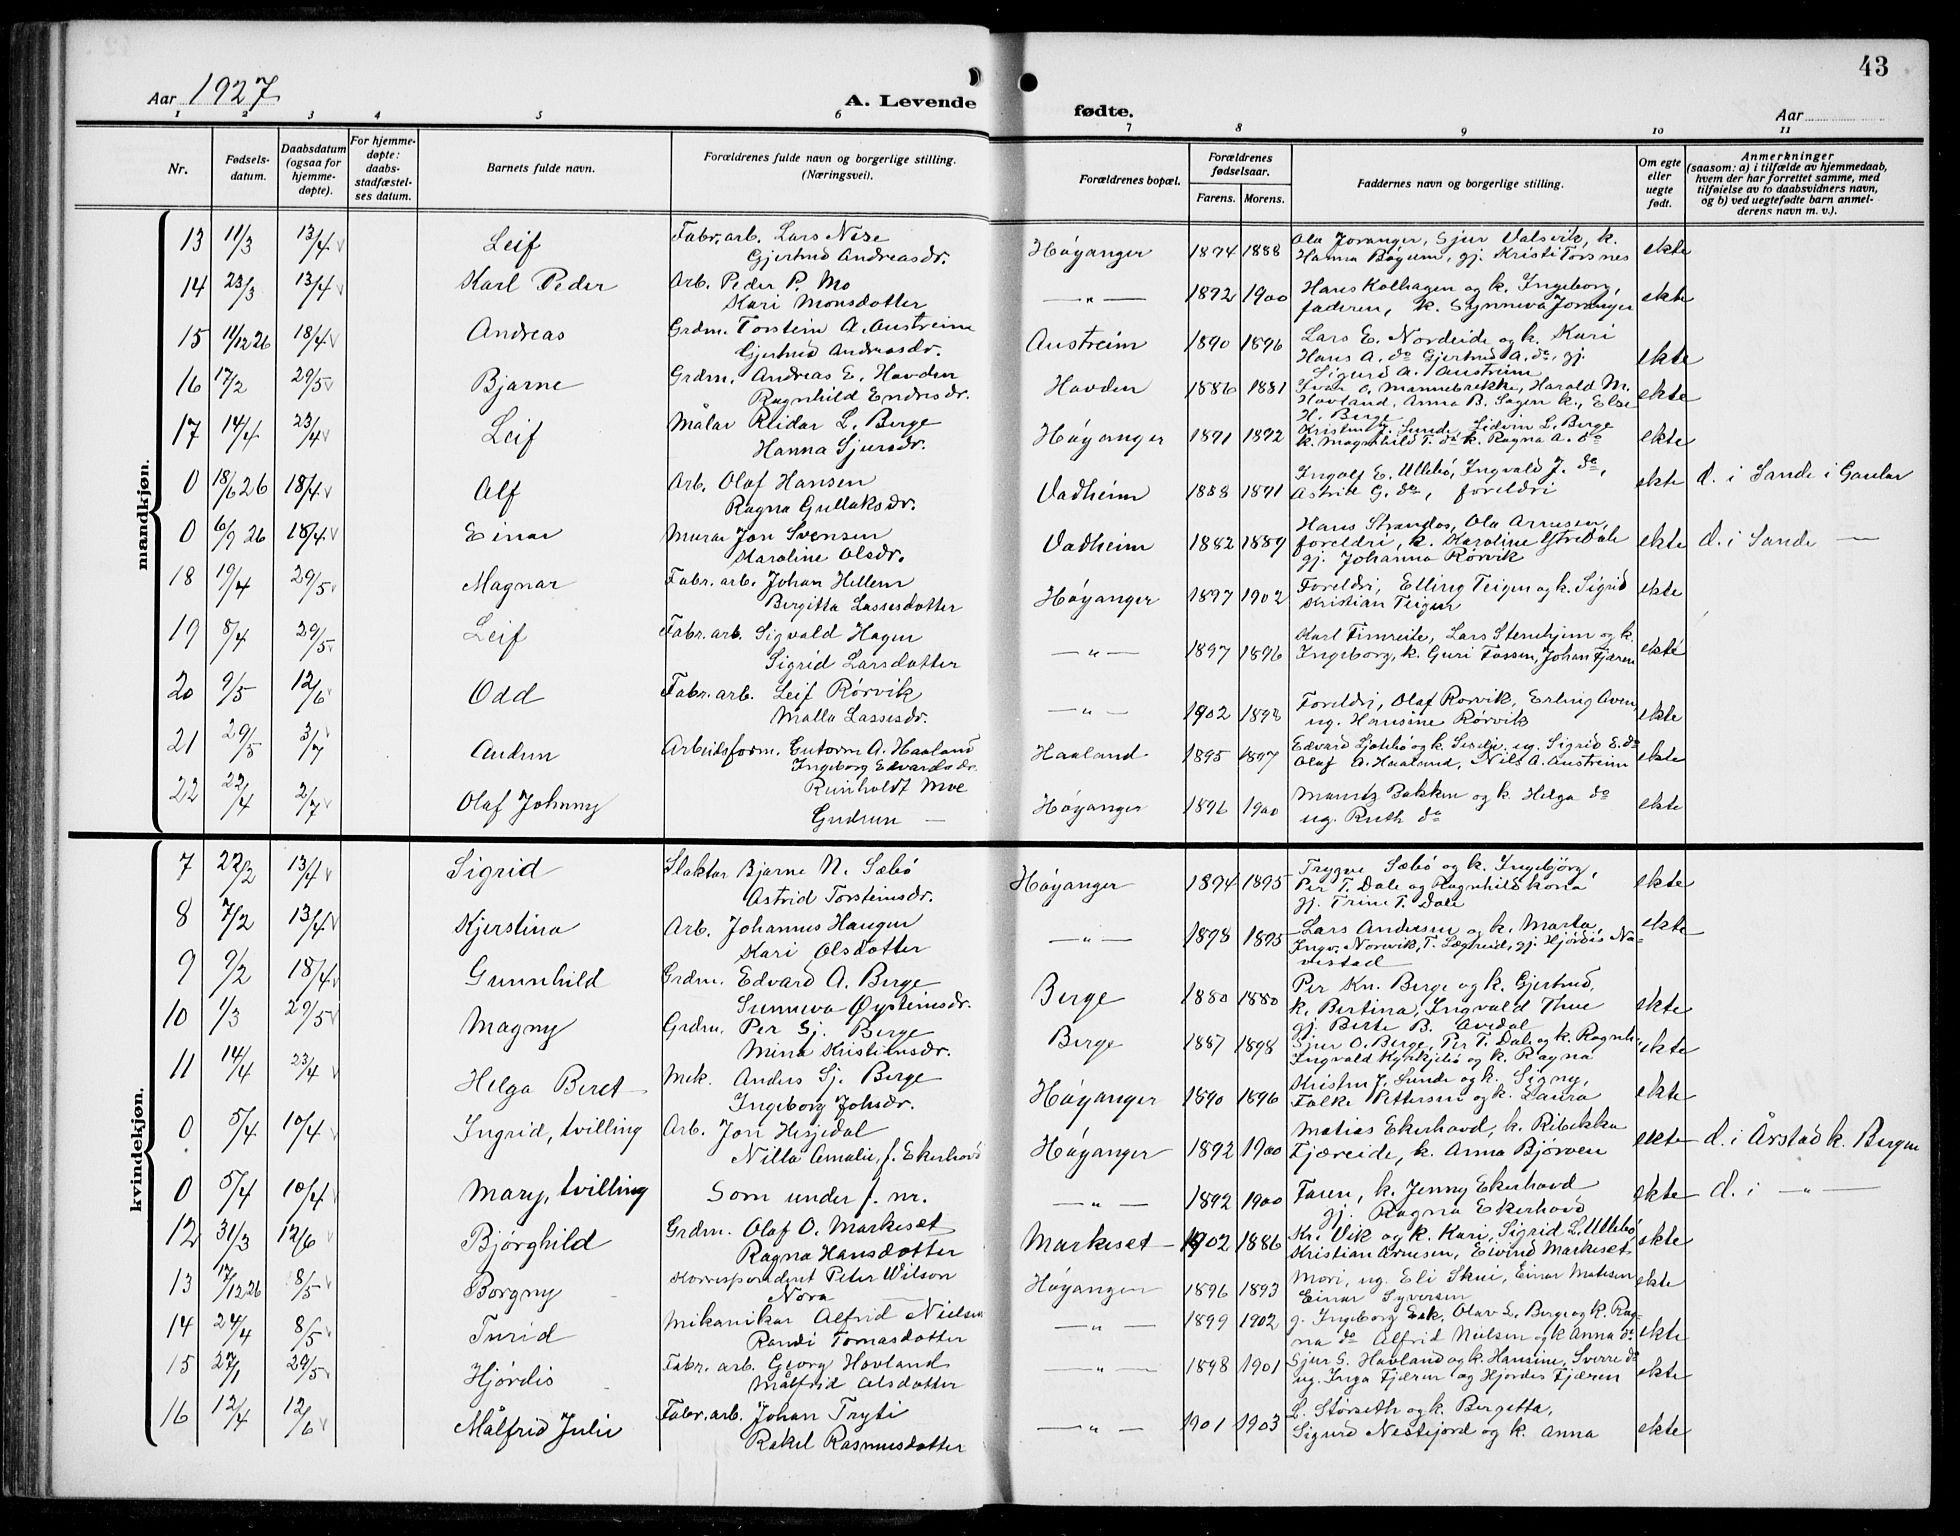 43
Aar 1927
A. Levende fødte.
Aar
1 2 3 4 5 6 7 8 9 10 11
Nr.
Fødsels-
datum.
Daabsdatum
(ogsaa for
hjemme-
døpte).
For hjemme-
døpte:
daabs-
stadfæstel-
ses datum.
Barnets fulde navn.
Forældrenes fulde navn og borgerlige stilling.
(Næringsvei).
Forældrenes bopæl.
Forældrenes
fødselsaar.
Farens. Morens.
Faddernes navn og borgerlige stilling.
Om egte
eller
uegte
født.
Anmerkninger
(saasom: a) i tilfælde av hjemmedaab,
hvem der har forrettet samme, med
tilføielse av to daabsvidners navn,
og b) ved uegtefødte barn anmel-
derens navn m. v.).
mandkjøn.
13 11/3 13/4 Leif Fabr. arb. Lars Nese Høyanger 1894 1888 Ola Joranger, Sjur Valsvik, k. ekte
Gjertrud Andreasdr. Hanna Bøyum, gj. Kristi Torsnes
14 23/3 13/4 Karl Peder Arb. Peder P. Mo —〃— 1892 1900 Hans Kolhagen og k. Ingeborg, ekte
Kari Monsdotter faderen, k. Synneva Joranger
15 11/12 26 18/4 Andreas Grdm. Torstein A. Austreim Austreim 1890 1896 Lars E. Nordeide og k. Kari ekte
Gjertrud Andreasdr. Hans A. do Gjertrud A. do, gj.
Sigurd A. Austreim
16 17/2 29/5 Bjarne Grdm. Andreas E. Hovden Hovden 1886 1881 Ivar O. Mannebrekke, Harald M. ekte
Ragnhild Endresdr. Hovland, Anna B. Sagen k., Else
H. Berge
17 14/4 23/4 Leif Målar Reidar L. Berge Høyanger 1891 1892 Kristen J. Sunde, Sidevin L. Berge ekte
Hanna Sjursdr. k. Magnhild T. do k. Ragna A. do
0 18/6 26 18/4 Alf Arb. Olaf Hansen Vadheim 1888 1891 Ingolf E. Ullebø, Ingvald J. do, ekte d. i Sande i Gaular
Ragna Gullaksdr. Astrid G. do, foreldri
0 6/9 26 18/4 Einar Murar Jon Svensen Vadheim 1882 1889 Hans Strandos, Ola Arnesen, ekte d. i Sande —
Karoline Olsdr. foreldri, k. Karoline Ytredale
gj. Johanna Rørvik
18 19/4 29/5 Magnar Fabr. arb. Johan Hellem Høyanger 1897 1902 Foreldri, Elling Teigen og k. Sigrid ekte
Bergitta Lassesdotter Kristian Teigen
19 8/4 29/5 Leif Fabr. arb. Sigvald Hagen —〃— 1897 1896 Karl Timreite, Lars Stenehjem og k. ekte
Sigrid Larsdotter Ingeborg, k. Guri Fossen, Johan Fjæren
20 9/5 12/6 Odd Fabr. arb. Leif Rørvik —〃— 1902 1898 Foreldri, Olaf Rørvik, Erling Aven, ekte
Malla Lassesdr. ug. Hansine Rørvik
21 29/5 3/7 Audun Arbeidsform. Gutorm A. Haaland Haaland 1895 1897 Edvard Ljotebø og k. Sesselje, ug. Sigrid E. do ekte
Ingeborg Edvardsdr. Olaf A. Haaland, Nils A. Austreim
22 22/4 2/7 Olaf Johnny Reinholdt Moe Høyanger 1896 1900 Mauritz Bakken og k. Helga do ekte
Gudrun — ug. Ruth do
kvindekjøn.
7 22/2 13/4 Sigrid Slaktar Bjarne N. Sæbø Høyanger 1894 1895 Trygve Sæbø og k. Ingebjørg, ekte
Astrid Torsteinsdr. Per T. Dale og Ragnhild kona
gj. Trine T. Dale
8 7/2 13/4 Kjerstina Arb. Johannes Haugen —〃— 1898 1895 Lars Andersen og k. Marta, ekte
Kari Olsdotter Ingv. Norevik, T. Lægreid, gj. Hjørdis Na-
vestad
9 9/2 18/4 Gunnhild Grdm. Edvard A. Berge Berge 1880 1880 Per Kn. Berge og k. Gjertrud, ekte
Sunneva Øysteinsdr. k. Bertina, Ingvald Thue
gj. Berte B. Avedal
10 1/3 29/5 Magny Grdm. Per Sj. Berge Berge 1887 1898 Sjur O. Berge, Per T. Dale og k. Ragnh. ekte
Mina Kristiansdr. Ingvald Kyrkjebø og k. Ragna
11 14/4 23/4 Helga Beret Mek. Anders Sj. Berge Høyanger 1890 1896 Kristen J. Sunde og k. Signy, ekte
Ingeborg Johsdr. Falke Pettersen og k. Laura
0 5/4 10/4 Ingrid, tvilling Arb. Jon Hisjedal Høyanger 1892 1900 Matias Ekerhovd, k. Ribekka ekte d. i Årstad k. Bergen
Nilla Amalie, f. Ekerhovd Fjæreide, k. Anna Bjørven
0 5/4 10/4 Mary, tvilling Som under f. nr. —〃— 1892 1900 Faren, k. Jenny Ekerhovd ekte d. i —〃—
gj. Ragna Ekerhovd
12 31/3 12/6 Bjørghild Grdm. Olaf O. Markeset Markeset 1902 1886 Kr. Vik og k. Kari, Sigrid L. Ullebø ekte
Ragna Hansdotter Kristian Arnesen, Eivind Markeset
13 17/12 26 8/5 Borgny Korrespondent Peter Wilson Høyanger 1896 1893 Mori, ug. Eli Skui, Einar Matesen ekte
Nora — Einar Syversen
14 24/4 8/5 Turid Mekanikar Alfrid Nielsen —〃— 1899 1902 g. Ingeborg Eek, Olav L. Berge og k. Rag- ekte
Randi Tomasdotter na do Alfrid Nielsen og k Anna do
15 27/1 29/5 Hjørdis Fabr. arb. Georg Hovland —〃— 1898 1901 Sjur S. Hovland og k. Hansine, Sverre do ekte
Målfrid Olsdotter ug. Inga Fjæren og Hjørdis Fjæren
16 12/4 12/6 Målfrid Julie Fabr. arb. Johan Tryti —〃— 1901 1903 L. Størseth og k. Bergetta, ekte
Rakel Rasmusdotter Sigurd Nestfjord og k. Anna